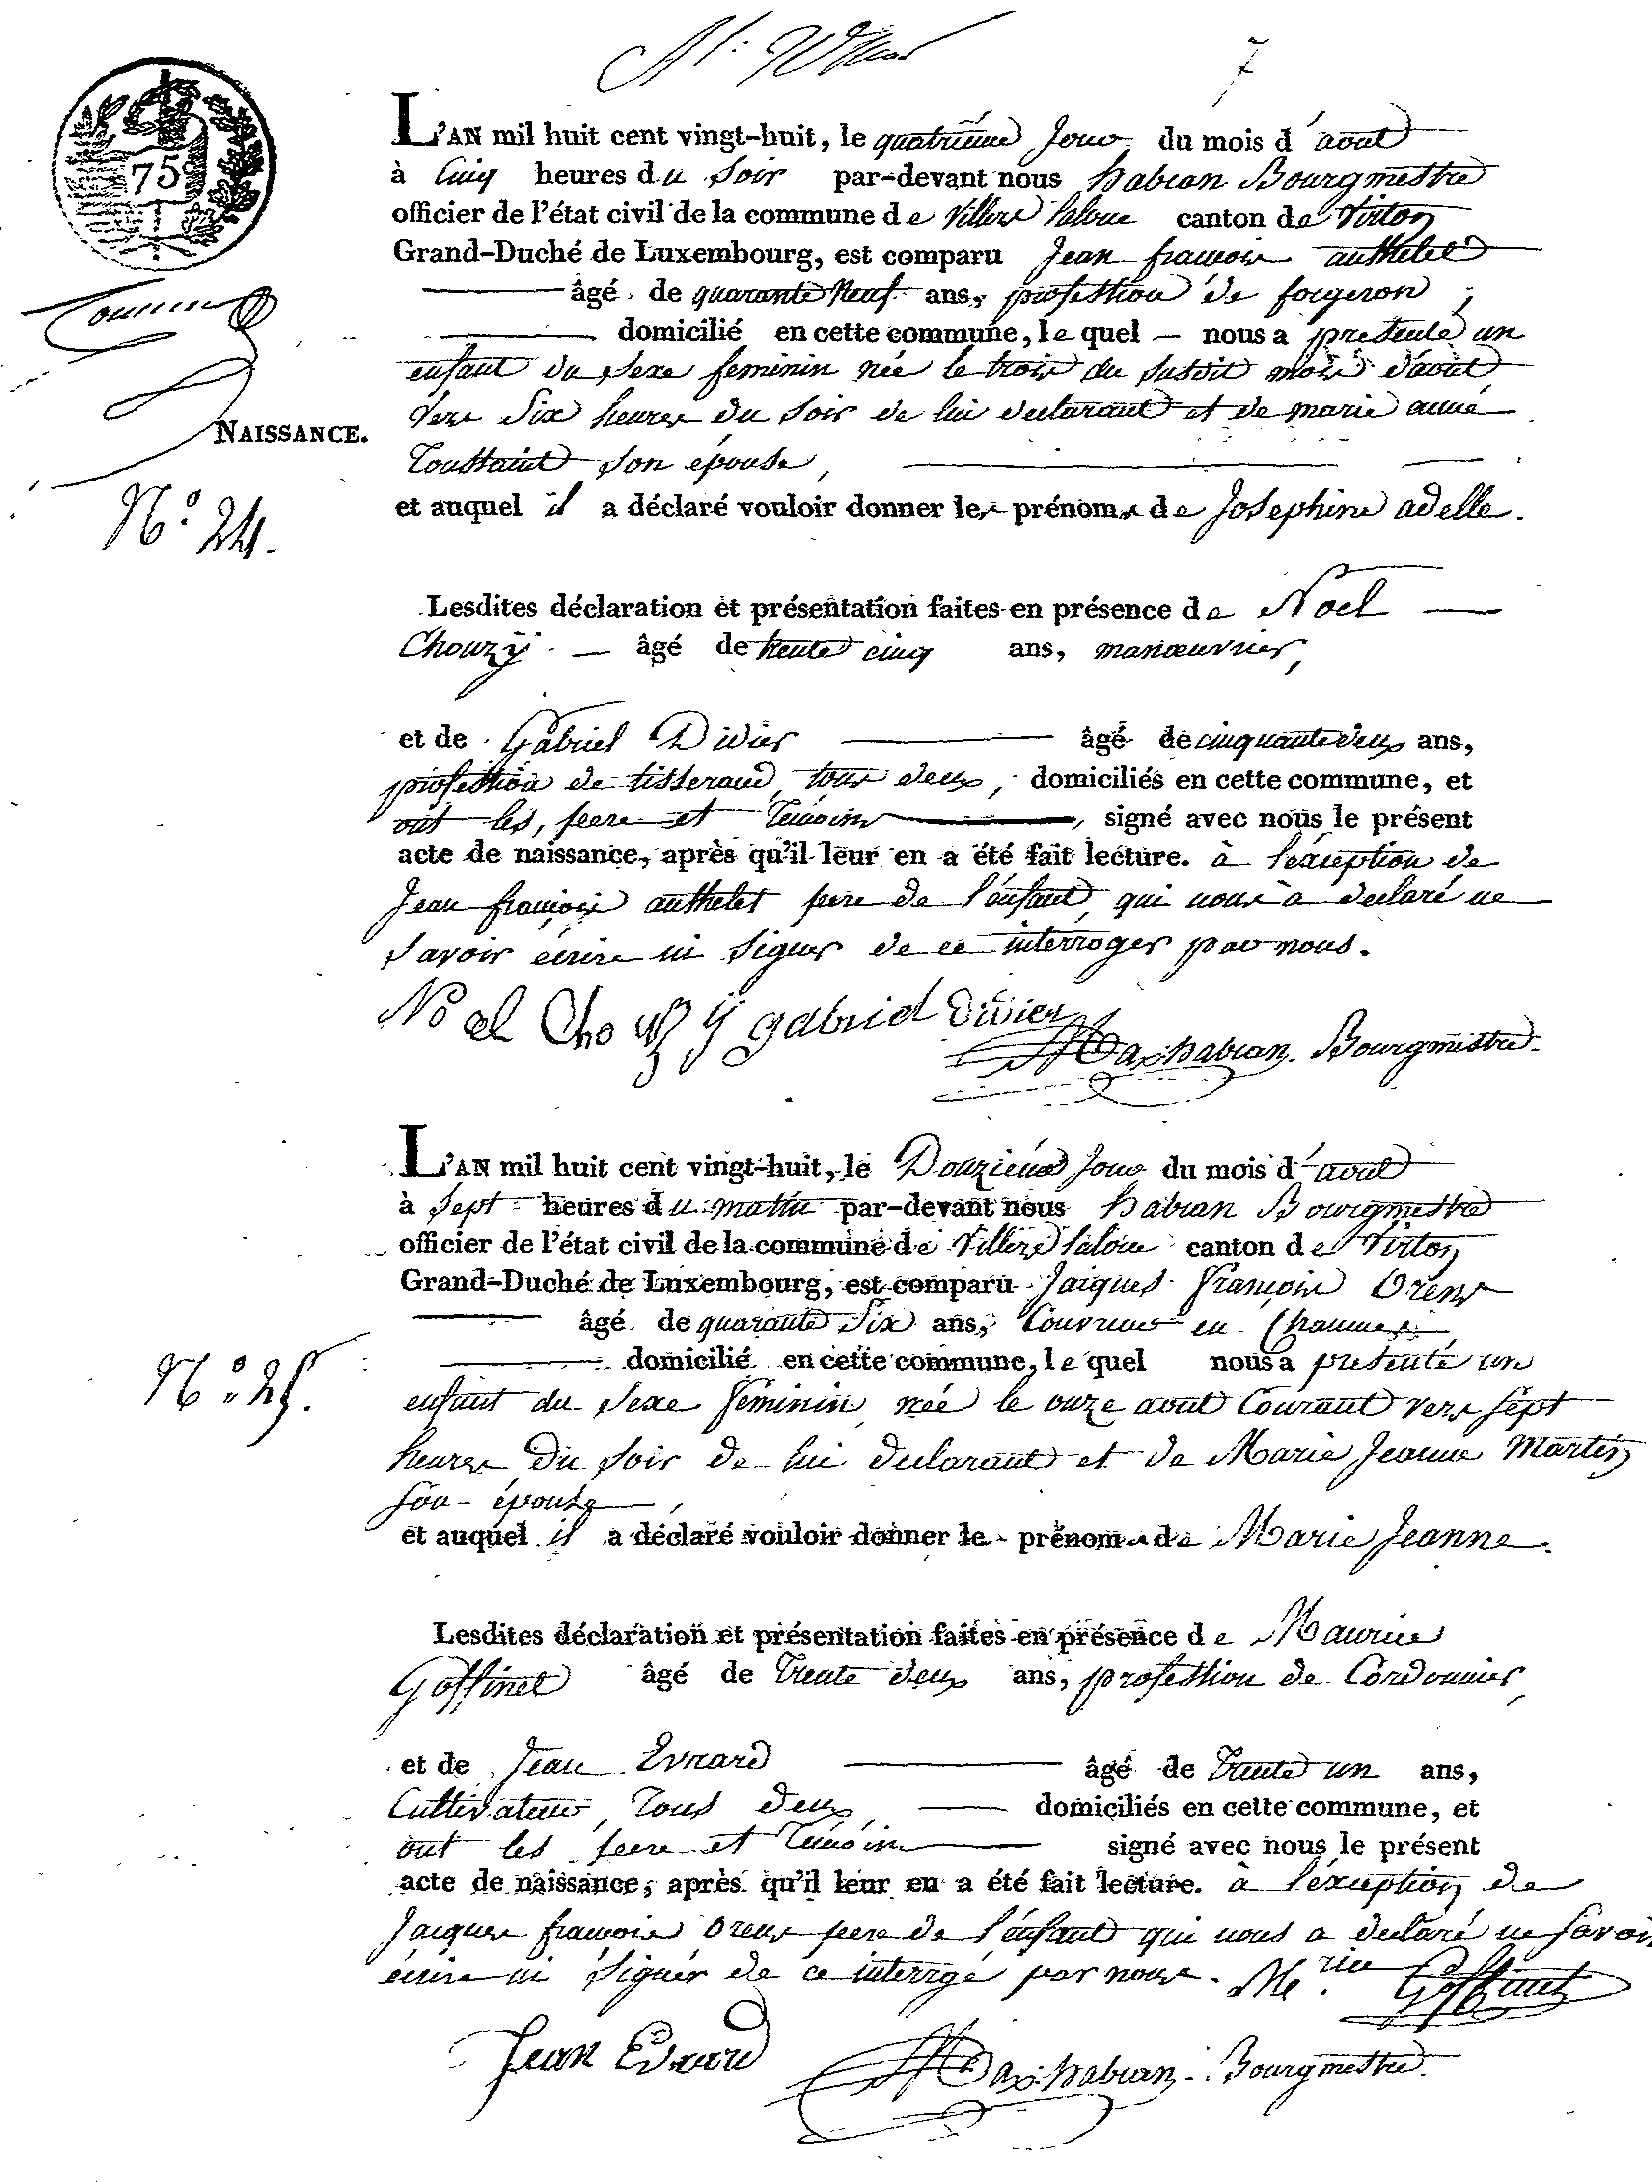 7
L'AN mil huit cent vingt-huit, le quatrième Jour du mois d'aout
75
à Cinq heures du Soir par-devant nous habran Bourgmestre
officier de l'état civil de la commune de Villers laloue canton de Virton
Grand-Duché de Luxembourg, est comparu Jean françois authelet
âgé de quarante Neuf ans, profession de forgeron,
domicilié en cette commune, le quel — nous a presenté un
enfant du Sexe feminin née le trois du susdit mois d'aout
vers Six heures du Soir de lui declarant et de marie anne
NAISSANCE.
Toussaint son épouse,
N.° 24.
et auquel il a déclaré vouloir donner les prénoms de Josephine adelle.
Lesdites déclaration et présentation faites en présence de Noel
Chouzÿ — âgé de trente cinq ans, manœuvrier,
et de Gabriel Didier âgé de cinquante deux ans,
profession de tisserand, tous deux, domiciliés en cette commune, et
ont les, pere et Témoins signé avec nous le présent
acte de naissance, après qu'il leur en a été fait lecture. à l'éxception de
Jean françois authelet pere de l'énfant, qui nous à declaré ne
savoir écrire ni signer de ce interroger par nous.
Noel Chouzÿ gabriel Didier
Max habran. Bourgmestre.
L'AN mil huit cent vingt-huit, le Douzième Jour du mois d'aout
à Sept heures du matin par-devant nous habran Bourgmestre
officier de l'état civil de la commune de Villers laloue canton de Virton
Grand-Duché de Luxembourg, est comparu Jacques François Orens
âgé de quarante Six ans, Couvreur en Chaumes,
domicilié en cette commune, le quel nous a presenté un
N.° 25.
enfant du Sexe féminin, née le onze aout Courant vers sept
heures Du soir de lui declarant et de Marie Jeanne Martin
son épouse,
et auquel il a déclaré vouloir donner le prénoms de Marie Jeanne.
Lesdites déclaration et présentation faites en présence de Maurice
Goffinet âgé de Trente deux ans, profession de Cordonnier,
et de Jean Evrard âgé de Trente un ans,
Cultivateur, Tous deux, domiciliés en cette commune, et
ont les pere et Témoins signé avec nous le présent
acte de naissance, après qu'il leur en a été fait lecture. à l'éxception de
Jacques françois Orens pere de l'énfant qui nous a declaré ne savoir
écrire ni signér de ce interrgé par nous. M.rice Goffinet
Jean Evrard
Max: habran. Bourgmestre.